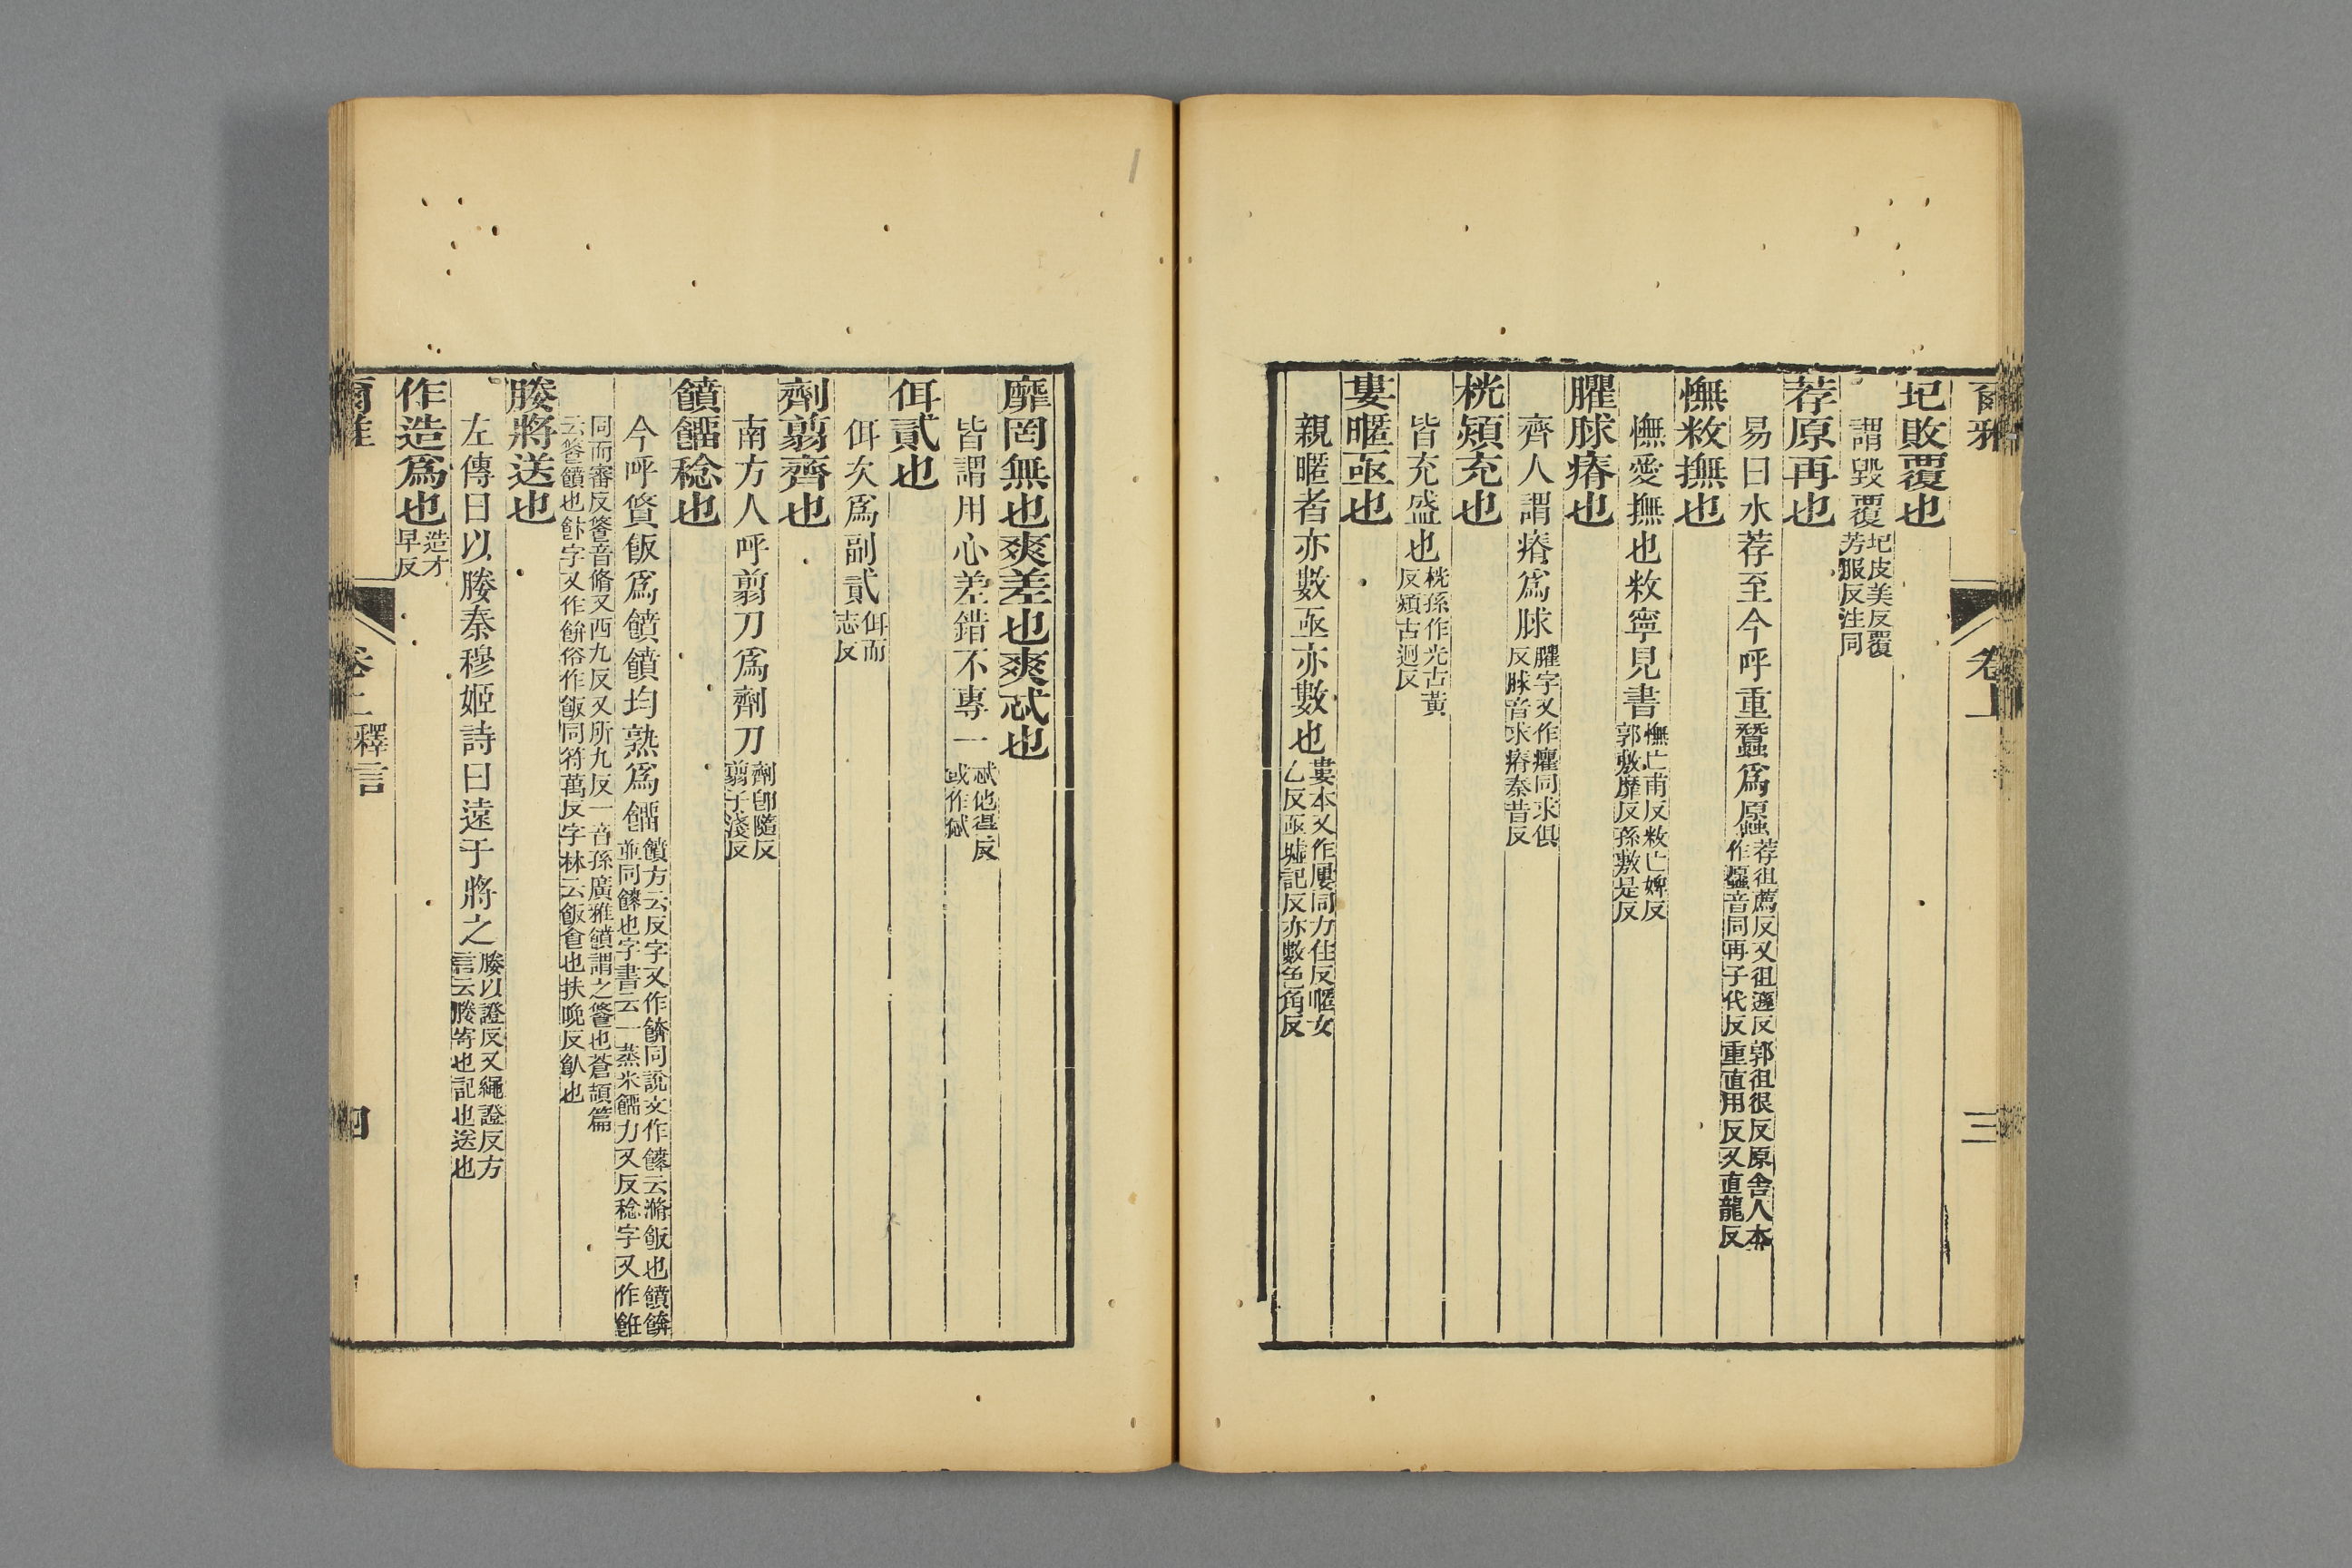 爾雅 卷上 三
圮敗覆也
謂毀覆圮皮美反覆芳服反注同
荐原再也
易曰水荐至今呼重蠶爲原䘉荐徂薦反又徂遜反郭徂很反原舍人本作䘉音同再子代反重直用反又直龍反
憮敉撫也
憮愛撫也敉寧見書憮亡甫反敉亡婢反郭敷靡反孫敷是反
臞脙瘠也
齊人謂瘠爲脙臞字又作癯同求俱反脙音求瘠秦昔反
桄熲充也
皆充盛也桄孫作光古黃反熲古迥反
婁暱亟也
親暱者亦數亟亦數也婁本又作屢同力住反暱女乙反亟墟記反亦數色角反
靡罔無也爽差也爽忒也
皆謂用心差錯不專一忒他得反或作貣
佴貳也
佴次爲副貳佴而志反
劑翦齊也
南方人呼翦刀爲劑刀劑卽隨反翦子淺反
饙餾稔也
今呼䬦飯爲饙饙均熟爲餾饙方云反字又作餴同說文作䭝云滫飯也饙餴並同䭝也字書云一蒸米餾力又反稔字又作飪
同而審反䬦音脩又西九反又所九反一音孫廣雅饙謂之䬦也蒼頡篇云䬦饙也飰字又作餅俗作飯同符萬反字林云飯食也扶晚反飤也
媵將送也
左傳曰以媵秦穆姬詩曰遠于將之媵以證反又繩證反方言云媵寄也記也送也
作造爲也造才早反
爾雅 卷上 釋言 四